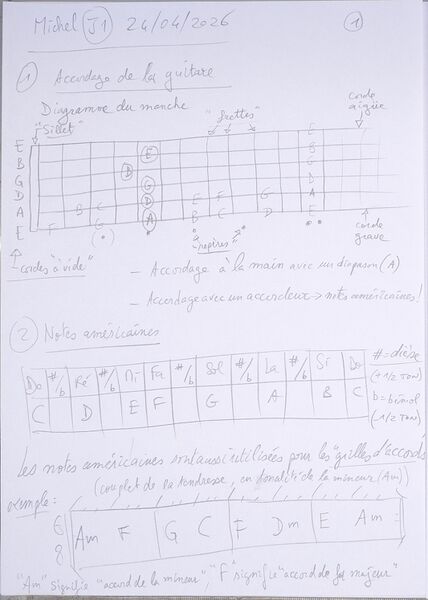 Michel J1 24/04/2026 1
1 Accordage de la guitare
Diagramme du manche
"Sillet" "frettes" corde aigüe
E E E
B B B
G G
D G D
A B C E F G A
E F G A B C D E
"repères"
corde grave
cordes "à vide"
– Accordage à la main avec un diapason (A)
– Accordage avec un accordeur → notes américaines!
2 Notes américaines
Do #/b Ré #/b Mi Fa #/b Sol #/b La #/b Si Do
C D E F G A B C
# = dièse
(+1/2 TON)
b = bémol
(-1/2 TON)
Les notes américaines sont aussi utilisées pour les "grilles d'accords"
(couplet de la tendresse, en tonalité de la mineur (Am)
exemple:
6
8 Am F G C F Dm E Am
"Am" signifie "accord de la mineur", "F" signifie "accord de fa majeur"